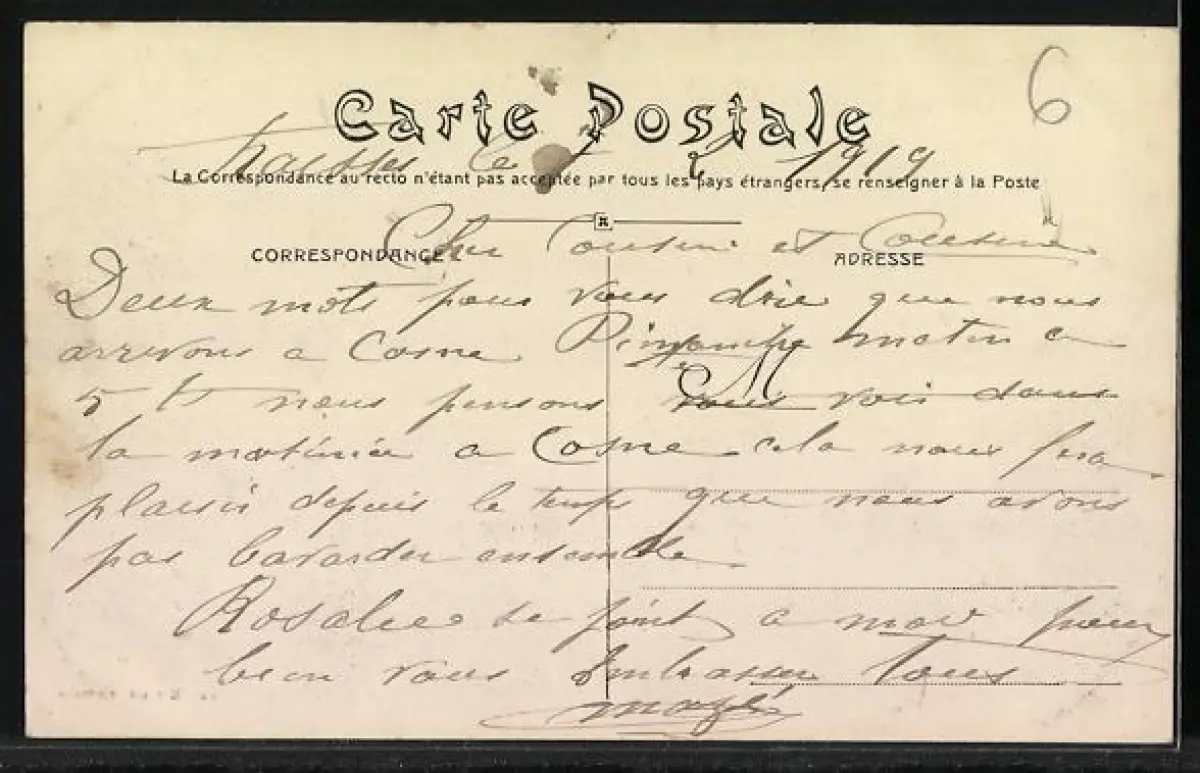 6
Carte Postale
le 1919
La Correspondance au recto n'étant pas acceptée par tous les pays étrangers, se renseigner à la Poste
R
CORRESPONDANCE
ADRESSE
Cher Cousin et Cousine
Deux mots pour vous dire que nous
arrivons a Cosne Dimanche matin a
5 h nous pensons vous voir dans
la matinée a Cosne cela nous fera
plaisir depuis le temps que nous avons
pas bavarder ensemble
Rosalie se joint a moi pour
bien vous Embrasser tous